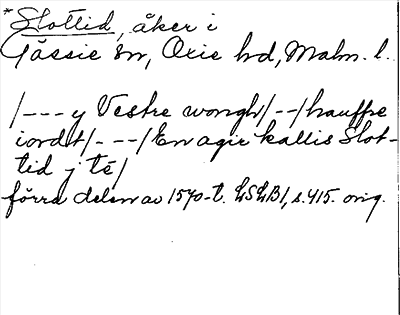 *Slottid, åker i
Gässie sn, Oxie hd, Malm. l.
/--- y Vestre wongh/--/hauffre
iordt/---/En agir kallis Slot-
tid j té/
förra delen av 1570-t. LSLB1, s.415. orig.